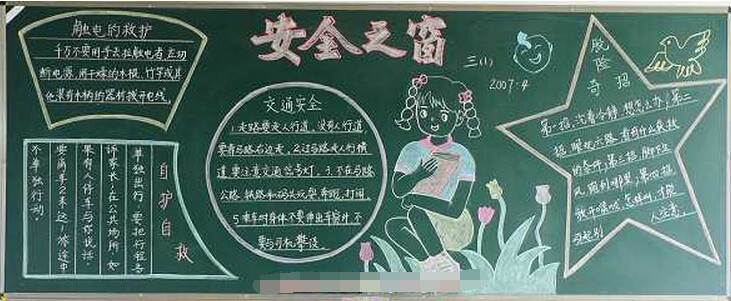 安全之窗
三(1)
2007.4
触电的救护
千万不要用手去拉触电者,立切
断电源,用干燥的木棍、竹竿或其
他装有木柄的器材拨开电线。
交通安全
1.走路要走人行道,没有人行道,
要靠马路右边走。2.过马路走人行横
道,要注意交通信号灯。3.不在马路
公路、铁路和码头玩耍、奔跑、打闹。
5.乘车时身体不要伸出车窗外,不
要与司机攀谈。
自护自救
单独出行,要把行程告
诉家长,在公共场所,如
果有人停车与你说话,
要离车2米远,旅途中
不单独行动。
脱险
奇招
第一招,沉着冷静,想怎么办;第二
招,眼观六路,看有什么获救
的条件;第三招,脚下生
风,跑到哪里;第四招,
人注意。